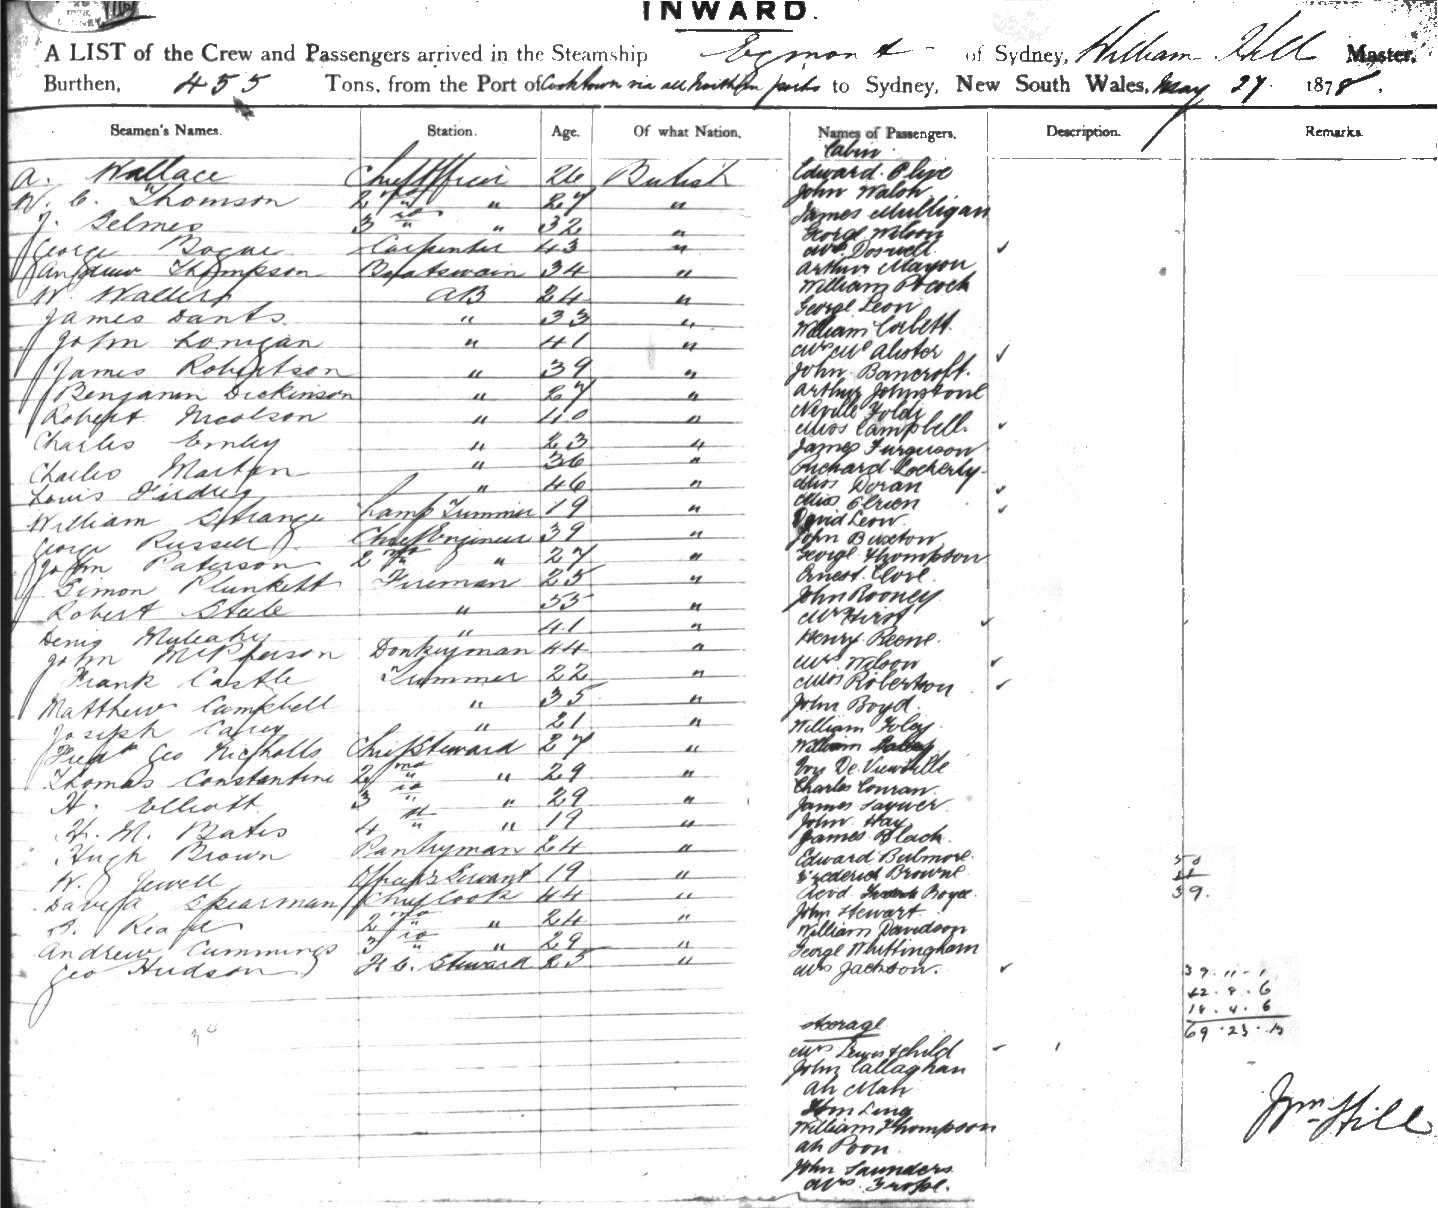 INWARD.
A LIST of the Crew and Passengers arrived in the Steamship Egmont of Sydney, William Hill Master,
Burthen, 455 Tons, from the Port of Cooktown via all Northern ports to Sydney, New South Wales, May 27 1878.
Seamen's Names. Station. Age. Of what Nation. Names of Passengers. Description. Remarks.
Cabin
A. Wallace Chief Officer 26 British Edward Clive
W. C. Thomson 2nd " " 27 " John Walsh
J. Selmes 3rd " " 32 " James Mulligan
George Wilson
George Bogue Carpenter 43 " Mrs. Doswell
Andrew Thompson Boatswain 34 " Arthur Mayou
W. Wallers AB 24 " William Pocock
James Dants " 33 " George Leon
John Lonigan " 41 " William Corbett
Mrs McAlister
James Robertson " 39 " John Bancroft.
Benjamin Dickinson " 27 " Arthur Johnstone
Robert Nicolson " 40 " Neville
Charles Emley " 23 " Miss Campbell.
Charles Martin " 36 " James Furguson
Louis " 46 " Richard Locherty
Miss Doran
William Strange Lamp Trimmer 19 " Miss
George Russell Chief Engineer 39 " David Leon.
John Paterson 2nd " " 27 " John Buxton
Simon Plunkett Fireman 25 " George Thompson
Robert Steele " 55 " Ernest
Denis Mulcahy " 41 " John Rooney
John McPherson Donkeyman 44 " Mr Hirst
Frank Castle Trimmer 22 " Henry
Matthew Campbell " 35 " Mrs. Wilson
Joseph Carey " 21 " Miss Robertson
Fred Geo Nicholls Chief Steward 27 " John Boyd.
Thomas Constantine 2nd " " 29 " William Foley
H. Elliott 3rd " " 29 " William
H. M. Bates 4th " " 19 " De
Hugh Brown Pantryman 24 " Charles Conran.
W. Jewell Officers Servant 19 " James Sawyer
David Spearman Chief Cook 44 " John Hay
R. 2nd " " 24 " James Black
Andrew Cummings 3rd " " 29 " Edward Bulmore
Geo Hudson F. C. Steward 25 " Frederick Browne
Revd Boyce
39.
John Stewart.
William Davidson
George Whittingham
Mrs Jackson.
39. 11. 1
12. 8. 6
18. 4. 6
69. 23. 13
Steerage
Mrs & child
John Callaghan
Ah Mah
Hom Ling
William Thompson
Ah Poon
John Saunders
Mrs.
Wm Hill